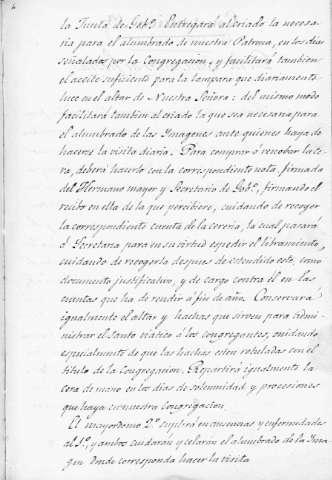 la Junta de Gobº. Entregará al criado la necesa-
ria para el alumbrado de nuestra Patrona, en los dias
señalados por la Congregacion, y facilitará tambien
el aceite suficiente para la lampara que diariamente
luce en el altar de Nuestra Señora: del mismo modo
facilitará tambien al criado la que sea necesaria para
el alumbrado de las Imagenes ante quienes haya de
hacerse la visita diaria. Para comprar ó renobar la ce-
ra, deberá hacerlo con la correspondiente nota, firmada
del Hermano mayor y Secretario de Gobº, firmando el
recibo en ella de la que percibiere, cuidando de recoger
la correspondiente cuenta de la cereria, la cual pasará
á Secretaria para en su virtud espedir el libramiento,
cuidando de recogerla despues de estendido este, como
documento justificativo, y de cargo contra él en las
cuentas que ha de rendir á fin de año. Conservará
igualmente el altar y hachas que sirven para admi-
nistrar el santo viatico á los congregantes, cuidando
especialmente de que las hachas esten rotuladas con el
titulo de la Congregacion. Repartirá igualmente la
cera de mano en los dias de solemnidad y procesiones
que haya en nuestra Congregacion.
El mayordomo 2º suplirá en ausencias y enfermedades
al 1º, y ambos cuidarán y celarán el alumbrado de la Ima-
gen donde corresponda hacer la visita